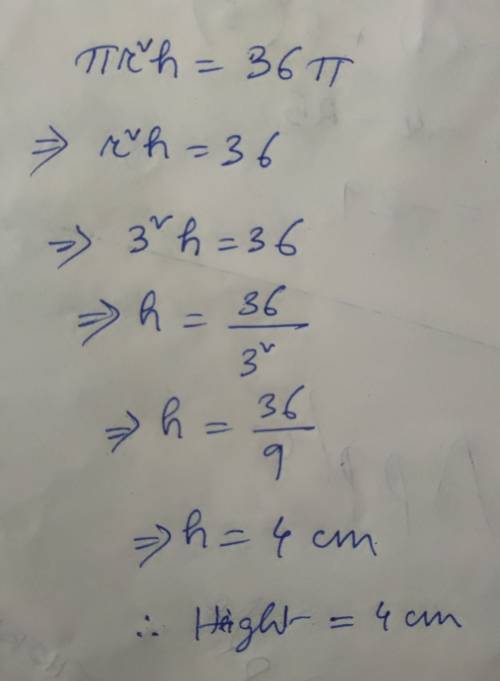 πr²h = 36π
⇒ r²h = 36
⇒ 3²h = 36
⇒ h = 36/3²
⇒ h = 36/9
⇒ h = 4 cm
∴ Hight = 4 cm